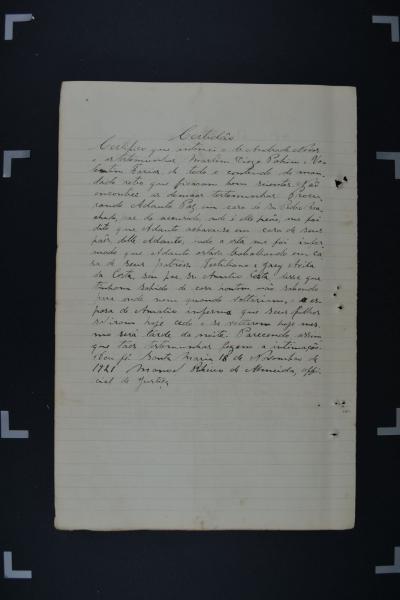 Certidão
Certifico que intimei a Andrade Neves
e as testemunhas Martim Pahim e Va-
Farias de todo o contendo do man-
dado retro que ficaram bem scientes. Não
encontrei as demais testemunhas. Procu-
rando Adauto Paz em casa de Pedro
onde é elle peão, me foi
dito que Adauto achava-se em casa de seus
pais, delle Adauto, onde a esta me foi infor-
mado que Adauto estava trabalhando em ca-
sa de seus patrões e
da Costa, seu pae sr Amalio Costa, disse que
tinham sahido de casa hontem não sabendo
para onde nem quando voltariam, a es-
posa de Amalio informa que seus filhos
sahiram hoje cedo e se voltarem hoje mes-
mo será tarde da noite. Parecendo assim
que taes testemunhas fogem a intimação.
Dou fé Santa Maria 18 de Novembro de
1921 Manoel Ribeiro de Almeida, offi-
cial de Justiça